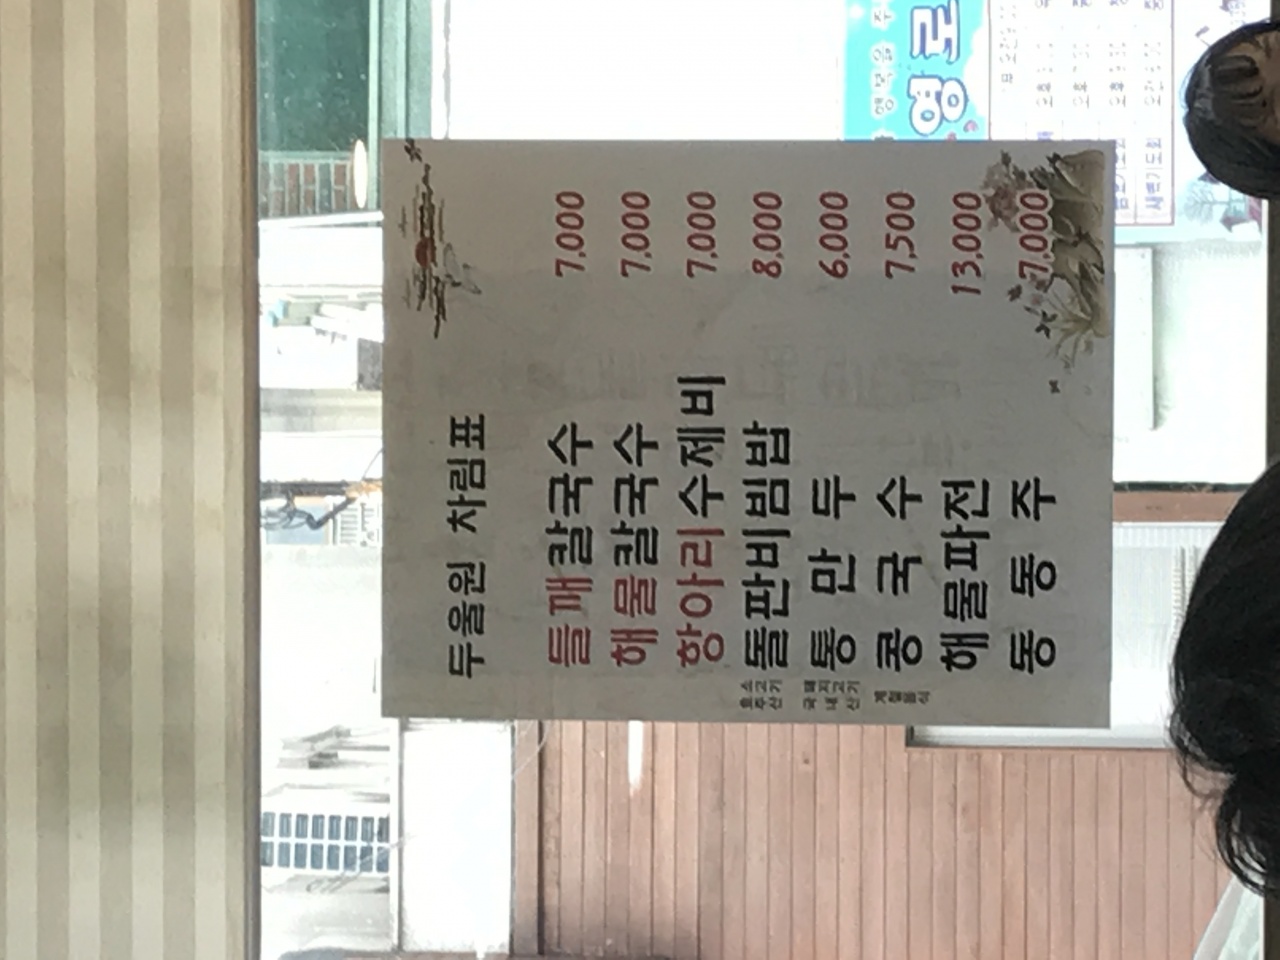 두울원 차림표
들깨칼국수 7,000
해물칼국수 7,000
항아리수제비 7,000
호주산 소고기 돌판비빔밥 8,000
국내산 돼지고기 통만두 6,000
계절음식 콩국수 7,500
해물파전 13,000
동동주 7,000
영로